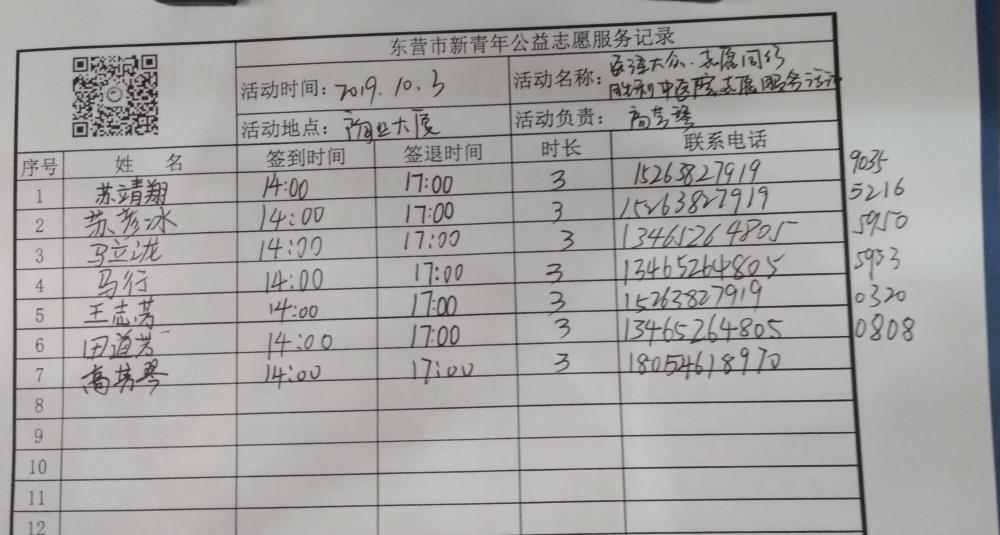 东营市新青年公益志愿服务记录
活动时间：2019.10.3 活动名称：医泽大众·志愿同行
胜利中医院志愿服务活动
活动地点：商业大厦 活动负责：
序号 姓 名 签到时间 签退时间 时长 联系电话
1 苏靖翔 14:00 17:00 3 15263827919 9035
2 苏彦冰 14:00 17:00 3 15263827919 5216
3 马立泷 14:00 17:00 3 13465264805 5950
4 马行 14:00 17:00 3 13465264805 5953
5 王志芳 14:00 17:00 3 15263827919 0320
6 田道芳 14:00 17:00 3 13465264805 0808
7 高 琴 14:00 17:00 3 18054618970
8
9
10
11
12